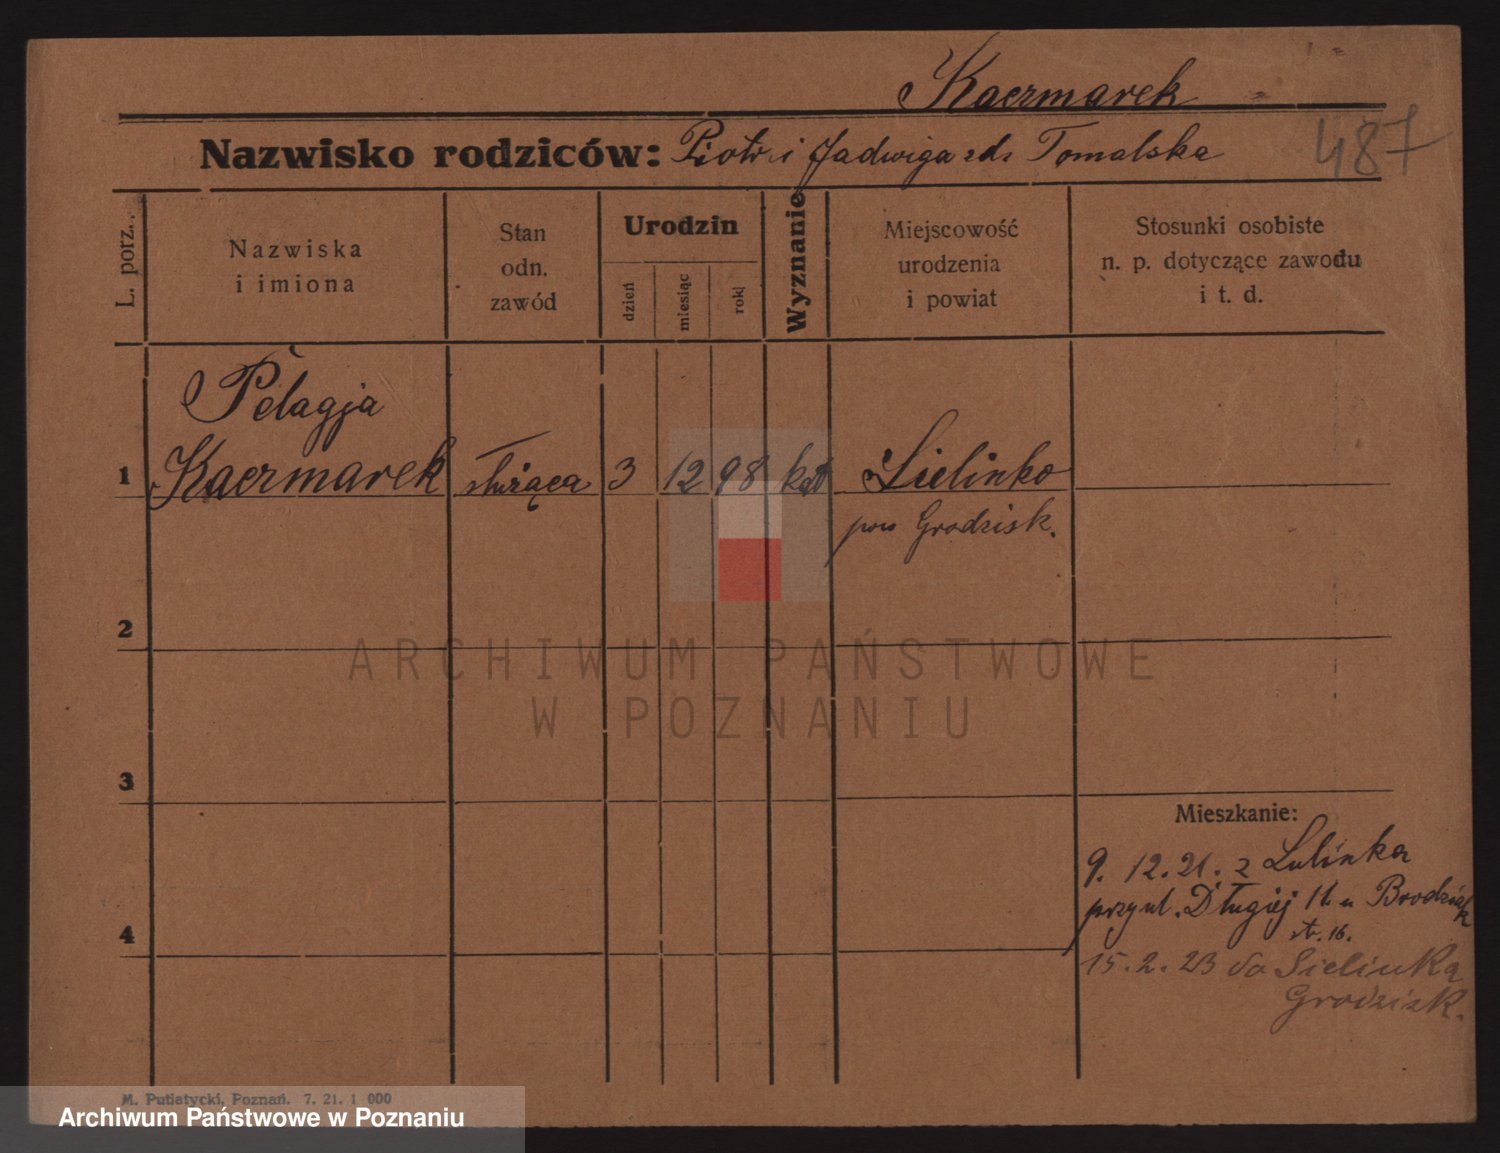 Kaczmarek
Nazwisko rodziców: Piotr i Jadwiga zd. Tomalska
487
L. porz.
Nazwiska
i imiona
Stan
odn.
zawód
Urodzin
dzień
miesiąc
rok
Wyznanie
Miejscowość
urodzenia
i powiat
Stosunki osobiste
n. p. dotyczące zawodu
i t. d.
Pelagja
1 Kaczmarek służąca 3 12 98 kat Sielinko
pow Grodzisk.
2
3
4
ARCHIWUM PAŃSTWOWE
W POZNANIU
Mieszkanie:
9. 12. 21. z Lulinka
przy ul. Długiej 11 u Brodziak
str. 16.
15. 2. 23 do Sielinka
Grodzisk.
M. Putiatycki, Poznań. 7. 21. 1 000
Archiwum Państwowe w Poznaniu